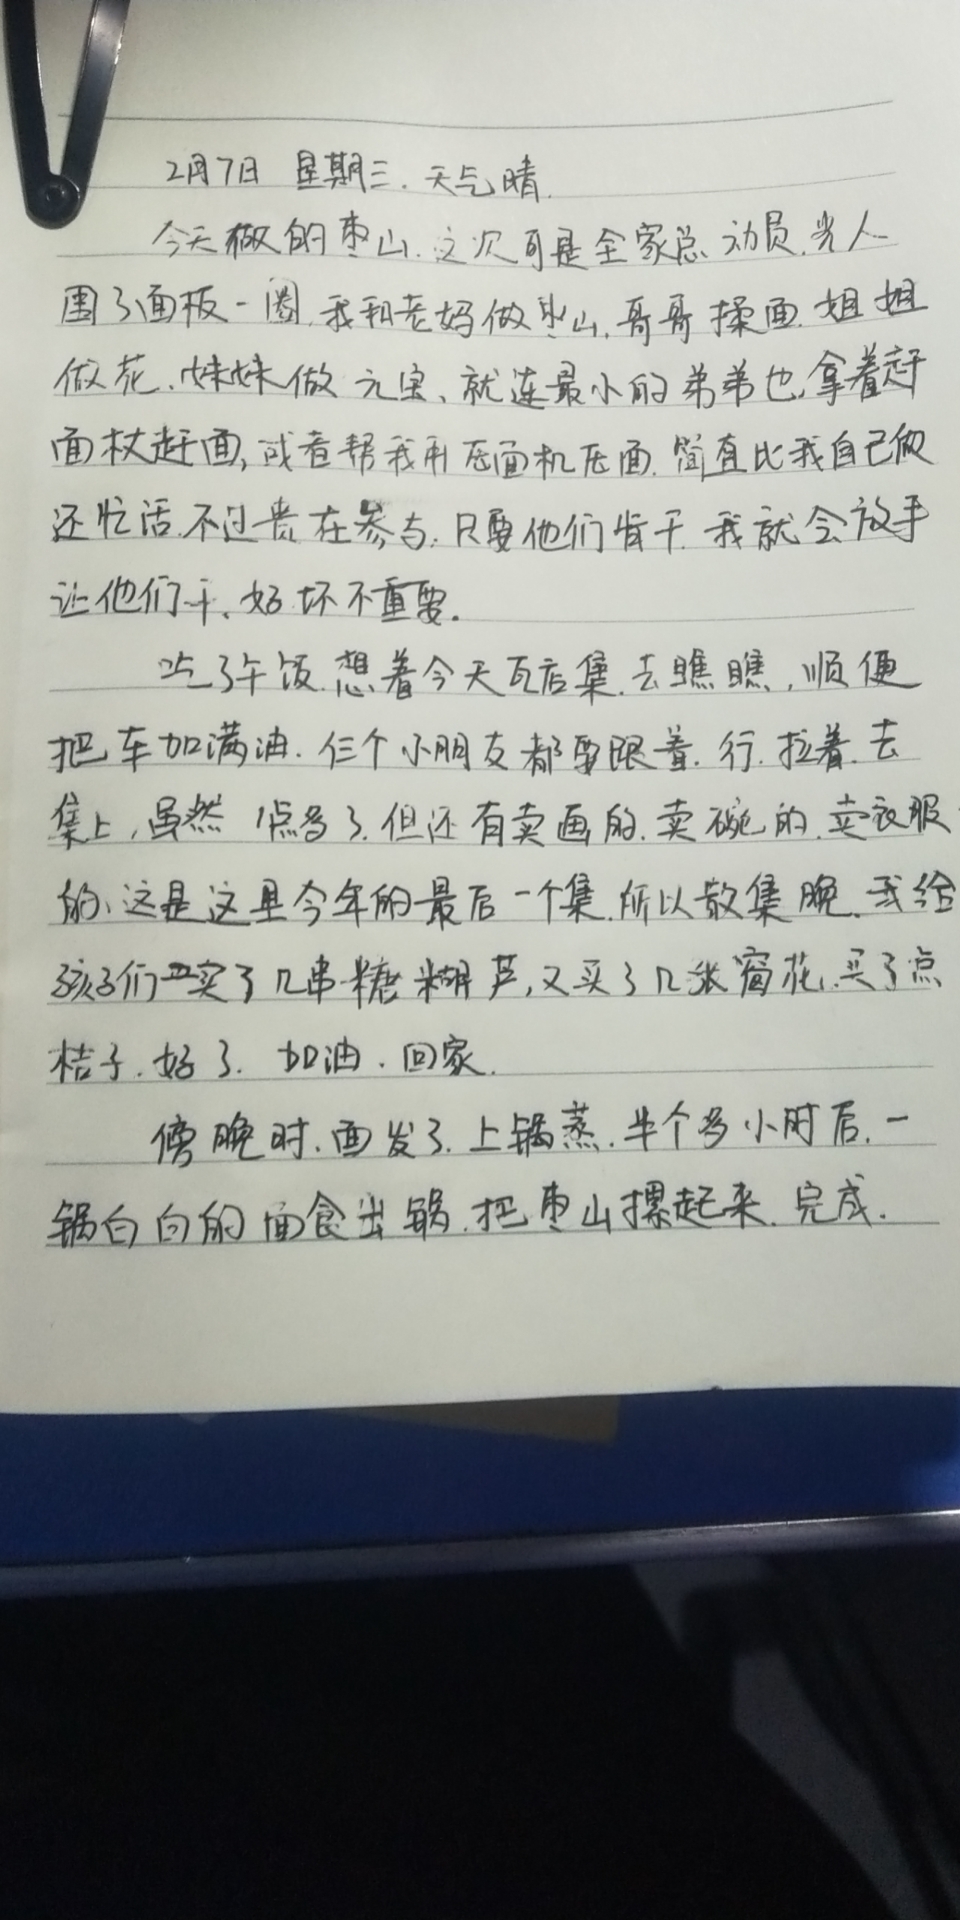 2月7日 星期三.天气晴.
今天做的枣山.这次可是全家总动员.光人
围了面板一圈.我和老妈做枣山.哥哥揉面.姐姐
做花.妹妹做元宝、就连最小的弟弟也,拿着赶
面杖赶面,或者帮我用压面机压面.简直比我自己做
还忙活.不过贵在参与.只要他们肯干.我就会放手
让他们干.好坏不重要.
吃了午饭.想着今天瓦店集.去瞧瞧,顺便
把车加满油.仨个小朋友都要跟着.行.拉着.去
集上,虽然1点多了.但还有卖画的.卖碗的.卖衣服
的、这是这里今年的最后一个集.所以散集晚.我给
孩子们买了几串糖糊芦,又买了几张窗花,买了点
桔子.好了.加油.回家.
傍晚时.面发了.上锅蒸.半个多小时后.一
锅白白的面食出锅.把枣山摞起来.完成.